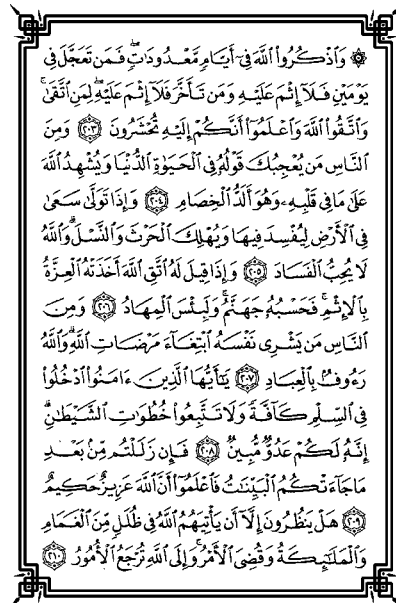 ۞ وَاذْكُرُوا اللَّهَ فِي أَيَّامٍ مَّعْدُودَاتٍ ۚ فَمَن تَعَجَّلَ فِي
يَوْمَيْنِ فَلَا إِثْمَ عَلَيْهِ وَمَن تَأَخَّرَ فَلَا إِثْمَ عَلَيْهِ ۚ لِمَنِ اتَّقَىٰ ۗ
وَاتَّقُوا اللَّهَ وَاعْلَمُوا أَنَّكُمْ إِلَيْهِ تُحْشَرُونَ ﴿٢٠٣﴾ وَمِنَ
النَّاسِ مَن يُعْجِبُكَ قَوْلُهُ فِي الْحَيَوٰةِ الدُّنْيَا وَيُشْهِدُ اللَّهَ
عَلَىٰ مَا فِي قَلْبِهِ وَهُوَ أَلَدُّ الْخِصَامِ ﴿٢٠٤﴾ وَإِذَا تَوَلَّىٰ سَعَىٰ
فِي الْأَرْضِ لِيُفْسِدَ فِيهَا وَيُهْلِكَ الْحَرْثَ وَالنَّسْلَ ۗ وَاللَّهُ
لَا يُحِبُّ الْفَسَادَ ﴿٢٠٥﴾ وَإِذَا قِيلَ لَهُ اتَّقِ اللَّهَ أَخَذَتْهُ الْعِزَّةُ
بِالْإِثْمِ ۚ فَحَسْبُهُ جَهَنَّمُ ۚ وَلَبِئْسَ الْمِهَادُ ﴿٢٠٦﴾ وَمِنَ
النَّاسِ مَن يَشْرِي نَفْسَهُ ابْتِغَاءَ مَرْضَاتِ اللَّهِ ۗ وَاللَّهُ
رَءُوفٌ بِالْعِبَادِ ﴿٢٠٧﴾ يَٰأَيُّهَا الَّذِينَ ءَامَنُوا ادْخُلُوا
فِي السِّلْمِ كَافَّةً وَلَا تَتَّبِعُوا خُطُوَٰتِ الشَّيْطَٰنِ ۚ
إِنَّهُ لَكُمْ عَدُوٌّ مُّبِينٌ ﴿٢٠٨﴾ فَإِن زَلَلْتُم مِّن بَعْدِ
مَا جَاءَتْكُمُ الْبَيِّنَٰتُ فَاعْلَمُوا أَنَّ اللَّهَ عَزِيزٌ حَكِيمٌ
﴿٢٠٩﴾ هَلْ يَنظُرُونَ إِلَّا أَن يَأْتِيَهُمُ اللَّهُ فِي ظُلَلٍ مِّنَ الْغَمَامِ
وَالْمَلَٰئِكَةُ وَقُضِيَ الْأَمْرُ ۚ وَإِلَى اللَّهِ تُرْجَعُ الْأُمُورُ ﴿٢١٠﴾